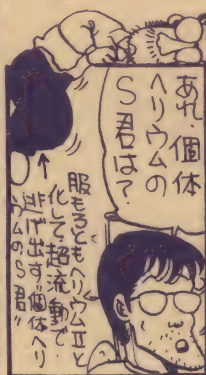 あれ、個体
ヘリウムの
S君は？
服もろともヘリウムⅡと
化して、超流動で
逃げ出す"個体ヘリ
ウムの、S君"